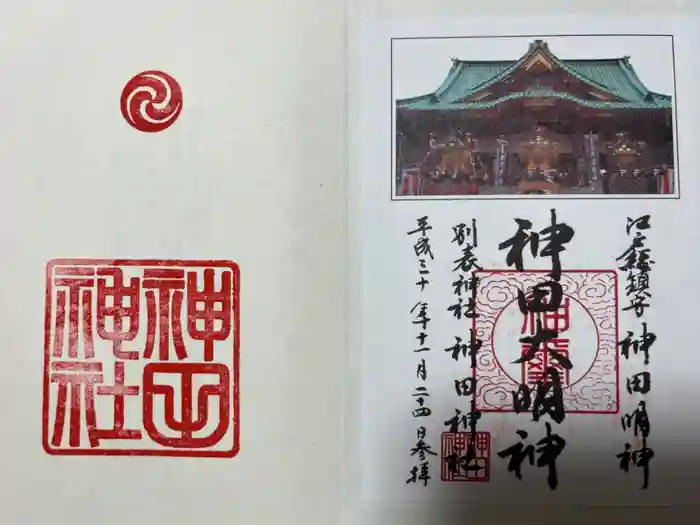 江戸總鎮守 神田明神
神田大明神
別表神社 神田神社
平成三十年十一月二十四日参拝
神田
神社